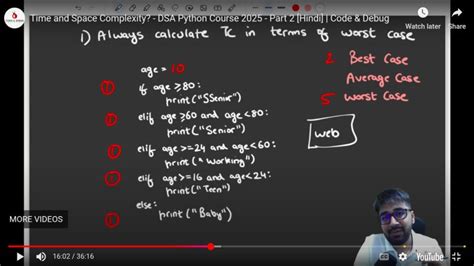 Time and Space Complexity? - DSA Python Course 2025 - Part 2 [Hindi] | Code & Debug
Watch later
Share
1) Always calculate TC in terms of worst case
age = 10
if age ≥80:
print("SSenior")
elif age ≥60 and age <80:
print("Senior")
elif age >=24 and age<60:
print("Working")
elif age >=16 and age<24:
print("Teen")
else:
print("Baby")
2 Best Case
Average Case
5 Worst Case
web
MORE VIDEOS
16:02 / 36:16
YouTube